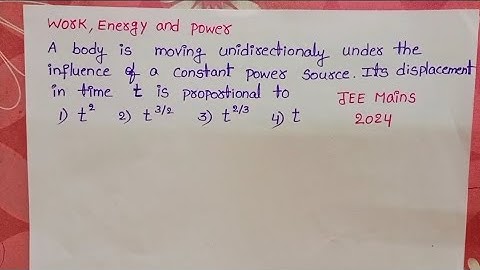 Work, Energy and power
A body is moving unidirectionaly under the
influence of a constant power source. Its displacement
in time t is proportional to
JEE Mains
1) t² 2) t^3/2 3) t^2/3 4) t
2024